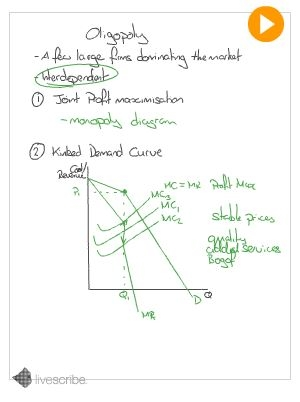 Oligopoly
- A few large firms dominating the market
- Interdependent
① Joint Profit maximisation
- monopoly diagram
② Kinked Demand Curve
Cost/
Revenue
MC = MR Profit Max
P1
MC3
MC1
MC2
Stable prices
quality
added services
Bogof
Q1
Q
D
MR
livescribe